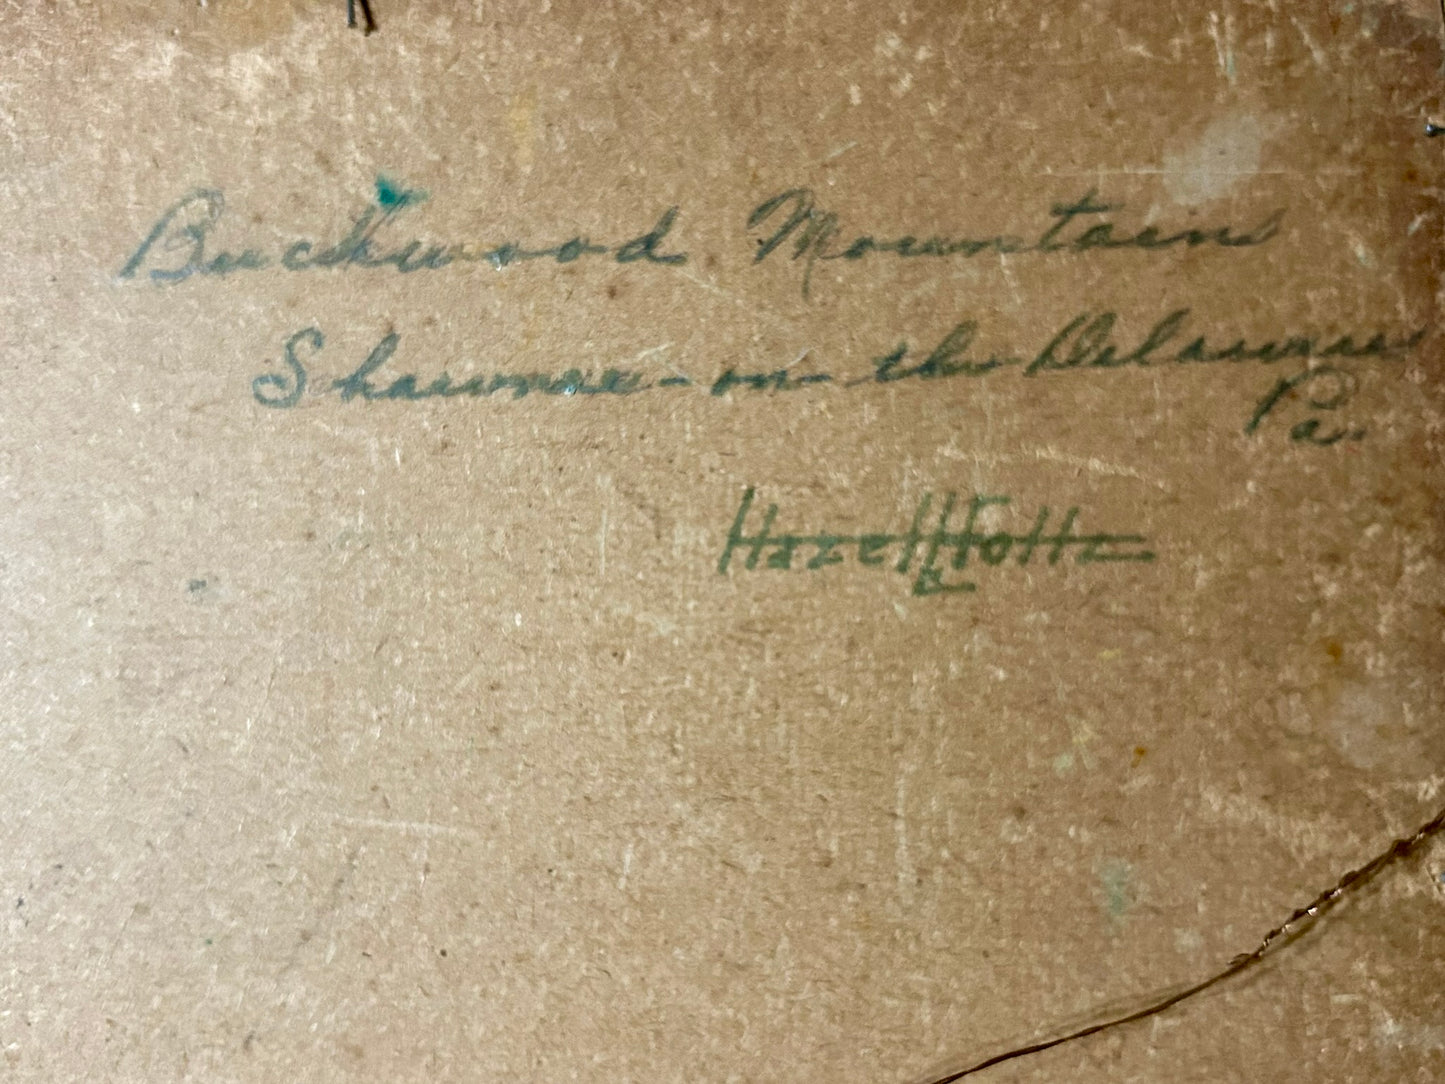 Buckwood Mountains
Shawnee-on-the Delaware
Pa.
Hazel